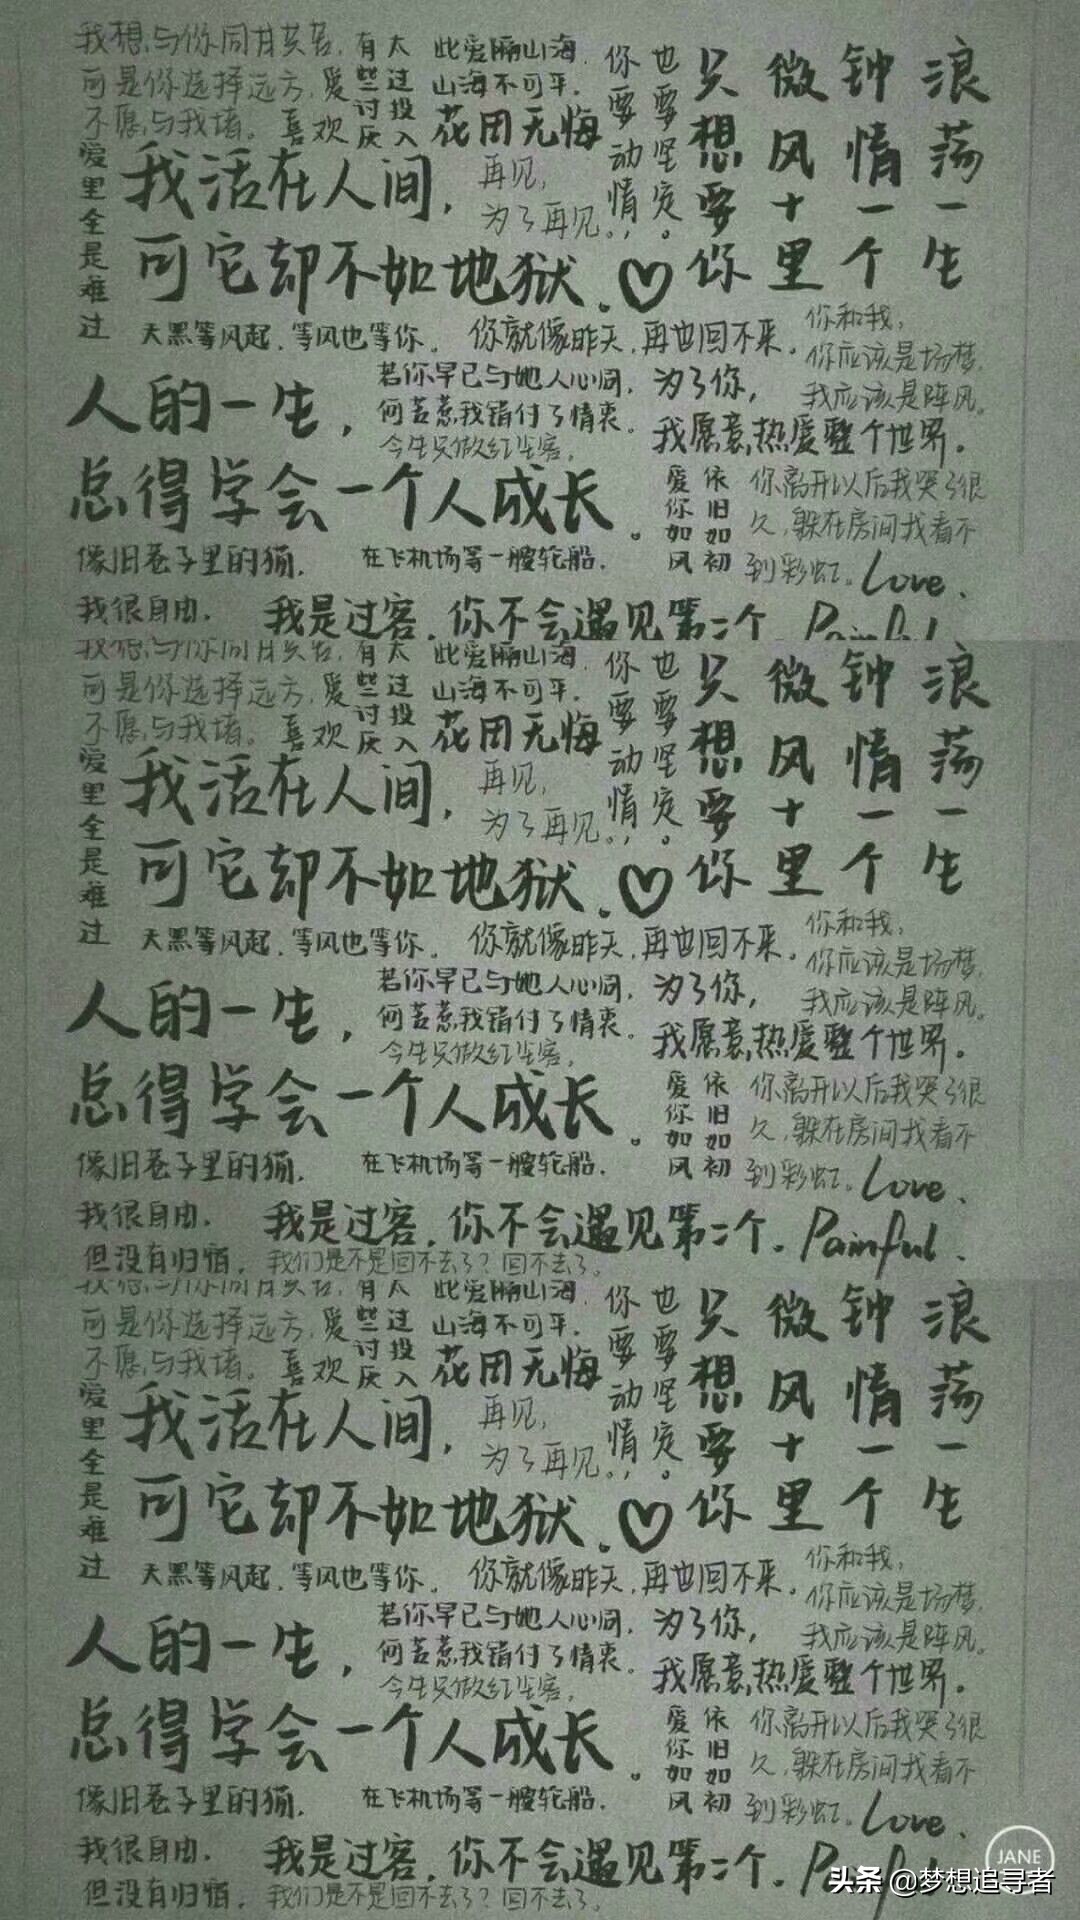 我想与你同甘共苦,
可是你选择远方,
不愿与我堵。
爱里全是难过
喜欢
有些讨厌
太过投入
此爱隔山海,
山海不可平.
花田无悔
你要动情,
也要坚定。
只想要你
微风十里
钟情一个
浪荡一生
我活在人间,
可它却不如地狱.♡
再见,
为了再见。
天黑等风起,等风也等你.
你就像昨天,再也回不来.
你和我,
你应该是场梦,
我应该是阵风。
人的一生,
总得学会一个人成长.
若你早已与她人心同,
何苦惹我错付了情衷。
今生只做红尘客,
为了你,
我愿意热爱整个世界.
爱你如风
依旧如初
你离开以后我哭了很
久,躲在房间找看不
到彩虹。
Love.
像旧巷子里的猫,
在飞机场等一艘轮船.
我很自由.
我是过客,你不会遇见第二个.
Painful
我想与你同甘共苦,
可是你选择远方,
不愿与我堵。
爱里全是难过
喜欢
有些讨厌
太过投入
此爱隔山海,
山海不可平.
花田无悔
你要动情,
也要坚定。
只想要你
微风十里
钟情一个
浪荡一生
我活在人间,
可它却不如地狱.♡
再见,
为了再见。
天黑等风起,等风也等你.
你就像昨天,再也回不来.
你和我,
你应该是场梦,
我应该是阵风。
人的一生,
总得学会一个人成长.
若你早已与她人心同,
何苦惹我错付了情衷。
今生只做红尘客,
为了你,
我愿意热爱整个世界.
爱你如风
依旧如初
你离开以后我哭了很
久,躲在房间找看不
到彩虹。
Love.
像旧巷子里的猫,
在飞机场等一艘轮船.
我很自由.
但没有归宿,
我是过客,你不会遇见第二个.
Painful.
我们是不是回不去了?回不去了。
我想与你同甘共苦,
可是你选择远方,
不愿与我堵。
爱里全是难过
喜欢
有些讨厌
太过投入
此爱隔山海,
山海不可平.
花田无悔
你要动情,
也要坚定。
只想要你
微风十里
钟情一个
浪荡一生
我活在人间,
可它却不如地狱.♡
再见,
为了再见。
天黑等风起,等风也等你.
你就像昨天,再也回不来.
你和我,
你应该是场梦,
我应该是阵风。
人的一生,
总得学会一个人成长.
若你早已与她人心同,
何苦惹我错付了情衷。
今生只做红尘客,
为了你,
我愿意热爱整个世界.
爱你如风
依旧如初
你离开以后我哭了很
久,躲在房间找看不
到彩虹。
Love.
像旧巷子里的猫,
在飞机场等一艘轮船.
我很自由.
但没有归宿,
我是过客,你不会遇见第二个.
我们是不是回不去了?回不去了。
JANE
头条 @梦想追寻者